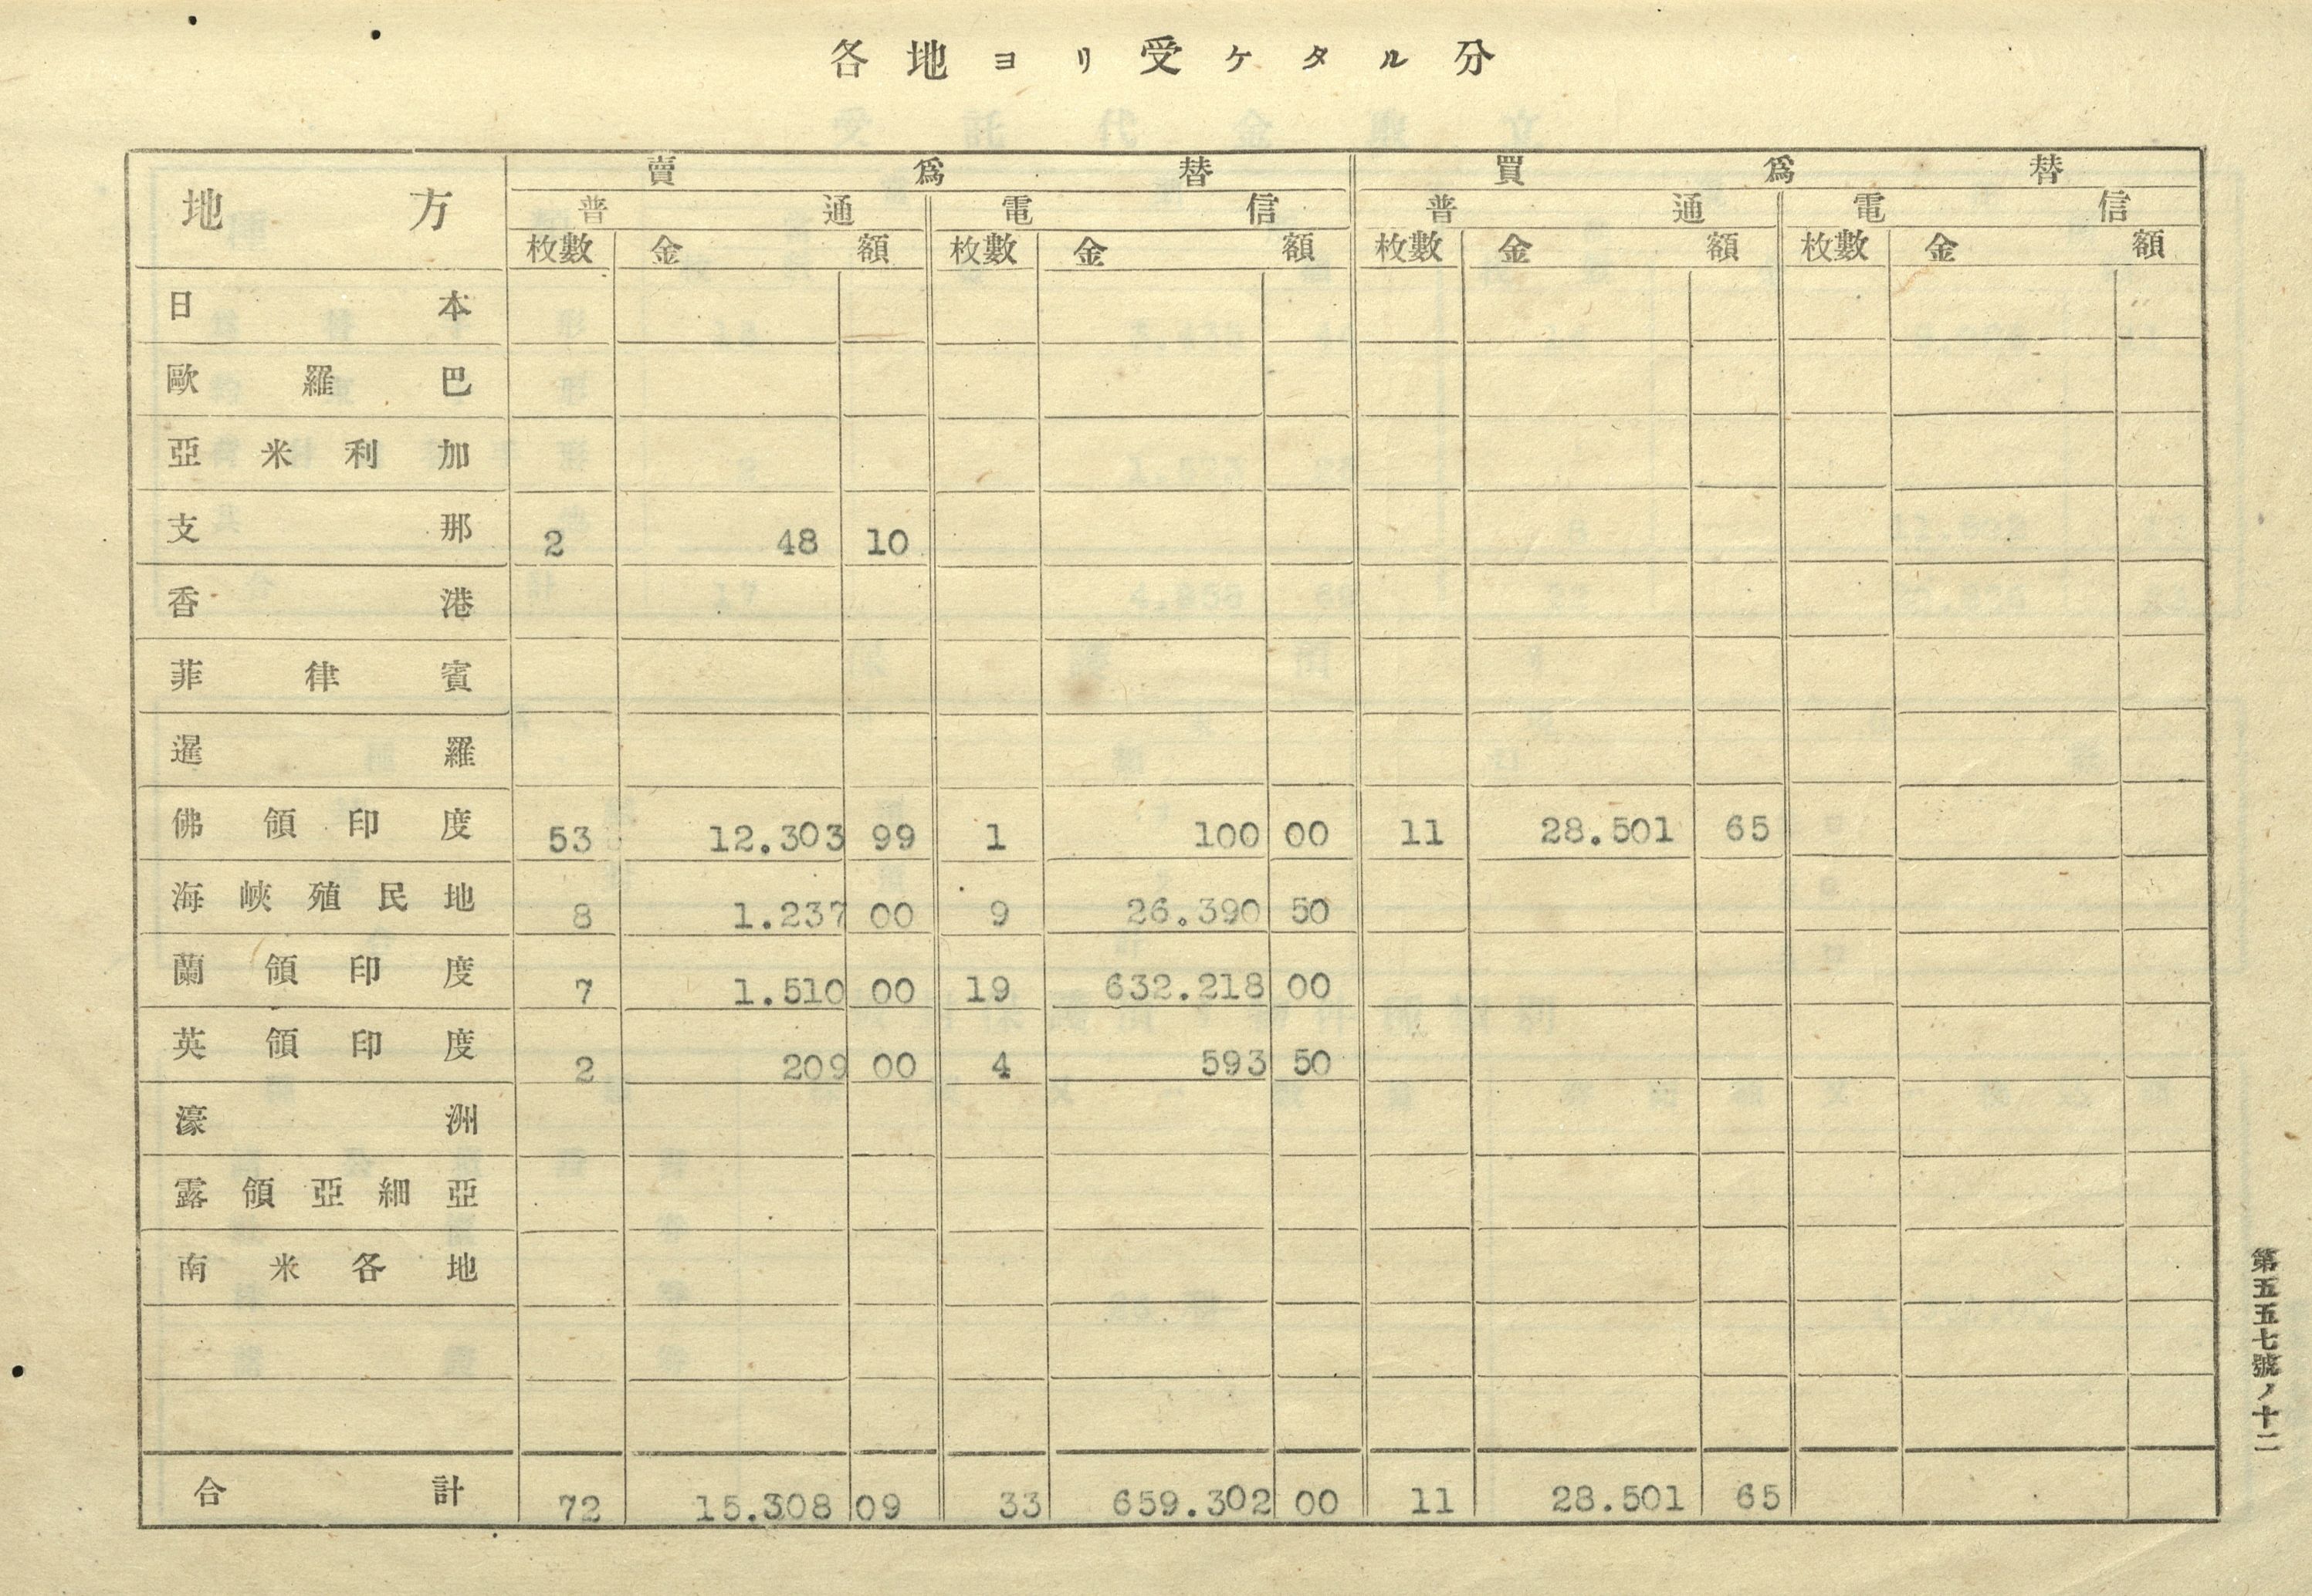 各地ヨリ受ケタル分
地方 賣爲替 買爲替
普通 電信 普通 電信
枚數 金額 枚數 金額 枚數 金額 枚數 金額
日本
歐羅巴
亞米利加
支那 2 48 10
香港
菲律賓
暹羅
佛領印度 53 12.303 99 1 100 00 11 28.501 65
海峽殖民地 8 1.237 00 9 26.390 50
蘭領印度 7 1.510 00 19 632.218 00
英領印度 2 209 00 4 593 50
濠洲
露領亞細亞
南米各地
合計 72 15.308 09 33 659.302 00 11 28.501 65
第五五七號ノ十二